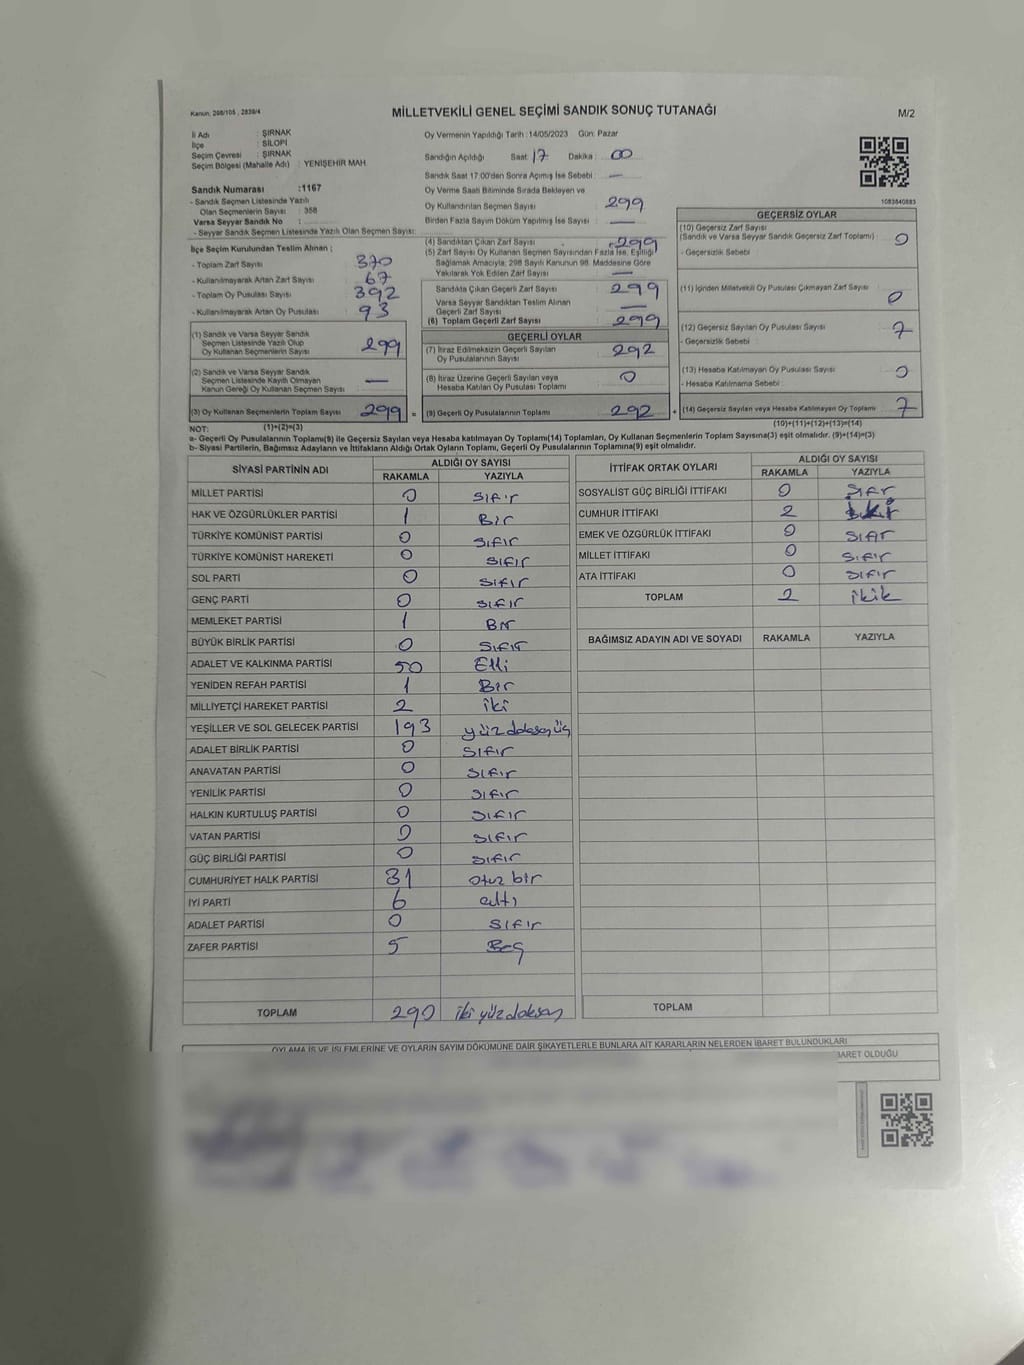 Kanun: 298/105 , 2839/4
MİLLETVEKİLİ GENEL SEÇİMİ SANDIK SONUÇ TUTANAĞI
M/2
İl Adı : ŞIRNAK
İlçe : SİLOPİ
Seçim Çevresi : ŞIRNAK
Seçim Bölgesi (Mahalle Adı) : YENİŞEHİR MAH.
Sandık Numarası :1167
- Sandık Seçmen Listesinde Yazılı
Olan Seçmenlerin Sayısı : 358
Varsa Seyyar Sandık No :
- Seyyar Sandık Seçmen Listesinde Yazılı Olan Seçmen Sayısı:
İlçe Seçim Kurulundan Teslim Alınan ;
- Toplam Zarf Sayısı 370
- Kullanılmayarak Artan Zarf Sayısı 67
- Toplam Oy Pusulası Sayısı 392
- Kullanılmayarak Artan Oy Pusulası 93
(1) Sandık ve Varsa Seyyar Sandık
Seçmen Listesinde Yazılı Olup
Oy Kullanan Seçmenlerin Sayısı 299
(2) Sandık ve Varsa Seyyar Sandık
Seçmen Listesinde Kayıtlı Olmayan
Kanun Gereği Oy Kullanan Seçmen Sayısı —
(3) Oy Kullanan Seçmenlerin Toplam Sayısı 299 =
Oy Vermenin Yapıldığı Tarih :14/05/2023 Gün: Pazar
Sandığın Açıldığı Saat: 17 Dakika : 00
Sandık Saat 17:00'den Sonra Açımış İse Sebebi : —
Oy Verme Saati Bitiminde Sırada Bekleyen ve
Oy Kullandırılan Seçmen Sayısı : 299
Birden Fazla Sayım Döküm Yapılmış İse Sayısı : —
(4) Sandıktan Çıkan Zarf Sayısı 299
(5) Zarf Sayısı Oy Kullanan Seçmen Sayısından Fazla İse, Eşitliği
Sağlamak Amacıyla, 298 Sayılı Kanunun 98. Maddesine Göre
Yakılarak Yok Edilen Zarf Sayısı —
Sandıkta Çıkan Geçerli Zarf Sayısı 299
Varsa Seyyar Sandıktan Teslim Alınan
Geçerli Zarf Sayısı —
(6) Toplam Geçerli Zarf Sayısı 299
GEÇERLİ OYLAR
(7) İtiraz Edilmeksizin Geçerli Sayılan
Oy Pusulalarının Sayısı 292
(8) İtiraz Üzerine Geçerli Sayılan veya
Hesaba Katılan Oy Pusulası Toplamı 0
(9) Geçerli Oy Pusulalarının Toplamı 292 +
1083840883
GEÇERSİZ OYLAR
(10) Geçersiz Zarf Sayısı
(Sandık ve Varsa Seyyar Sandık Geçersiz Zarf Toplamı) : 0
- Geçersizlik Sebebi :
(11) İçinden Milletvekili Oy Pusulası Çıkmayan Zarf Sayısı : 0
(12) Geçersiz Sayılan Oy Pusulası Sayısı : 7
- Geçersizlik Sebebi :
(13) Hesaba Katılmayan Oy Pusulası Sayısı : 0
- Hesaba Katılmama Sebebi :
(14) Geçersiz Sayılan veya Hesaba Katılmayan Oy Toplamı 7
NOT: (1)+(2)=(3) (10)+(11)+(12)+(13)=(14)
a- Geçerli Oy Pusulalarının Toplamı(9) ile Geçersiz Sayılan veya Hesaba katılmayan Oy Toplamı(14) Toplamları, Oy Kullanan Seçmenlerin Toplam Sayısına(3) eşit olmalıdır. (9)+(14)=(3)
b- Siyasi Partilerin, Bağımsız Adayların ve İttifakların Aldığı Ortak Oyların Toplamı, Geçerli Oy Pusulalarının Toplamına(9) eşit olmalıdır.
SİYASİ PARTİNİN ADI ALDIĞI OY SAYISI
RAKAMLA YAZIYLA
MİLLET PARTİSİ 0 sıfır
HAK VE ÖZGÜRLÜKLER PARTİSİ 1 Bir
TÜRKİYE KOMÜNİST PARTİSİ 0 sıfır
TÜRKİYE KOMÜNİST HAREKETİ 0 sıfır
SOL PARTİ 0 sıfır
GENÇ PARTİ 0 sıfır
MEMLEKET PARTİSİ 1 Bir
BÜYÜK BİRLİK PARTİSİ 0 sıfır
ADALET VE KALKINMA PARTİSİ 50 Elli
YENİDEN REFAH PARTİSİ 1 Bir
MİLLİYETÇİ HAREKET PARTİSİ 2 iki
YEŞİLLER VE SOL GELECEK PARTİSİ 193 yüz doksan üç
ADALET BİRLİK PARTİSİ 0 sıfır
ANAVATAN PARTİSİ 0 sıfır
YENİLİK PARTİSİ 0 sıfır
HALKIN KURTULUŞ PARTİSİ 0 sıfır
VATAN PARTİSİ 0 sıfır
GÜÇ BİRLİĞİ PARTİSİ 0 sıfır
CUMHURİYET HALK PARTİSİ 31 otuz bir
İYİ PARTİ 6 altı
ADALET PARTİSİ 0 sıfır
ZAFER PARTİSİ 5 Beş
TOPLAM 290 iki yüz doksan
İTTİFAK ORTAK OYLARI ALDIĞI OY SAYISI
RAKAMLA YAZIYLA
SOSYALİST GÜÇ BİRLİĞİ İTTİFAKI 0 sıfır
CUMHUR İTTİFAKI 2
EMEK VE ÖZGÜRLÜK İTTİFAKI 0 sıfır
MİLLET İTTİFAKI 0 sıfır
ATA İTTİFAKI 0 sıfır
TOPLAM 2 ikik
BAĞIMSIZ ADAYIN ADI VE SOYADI RAKAMLA YAZIYLA
TOPLAM
OYLAMA İŞ VE İŞLEMLERİNE VE OYLARIN SAYIM DÖKÜMÜNE DAİR ŞİKAYETLERLE BUNLARA AİT KARARLARIN NELERDEN İBARET BULUNDUKLARI
BARET OLDUĞU